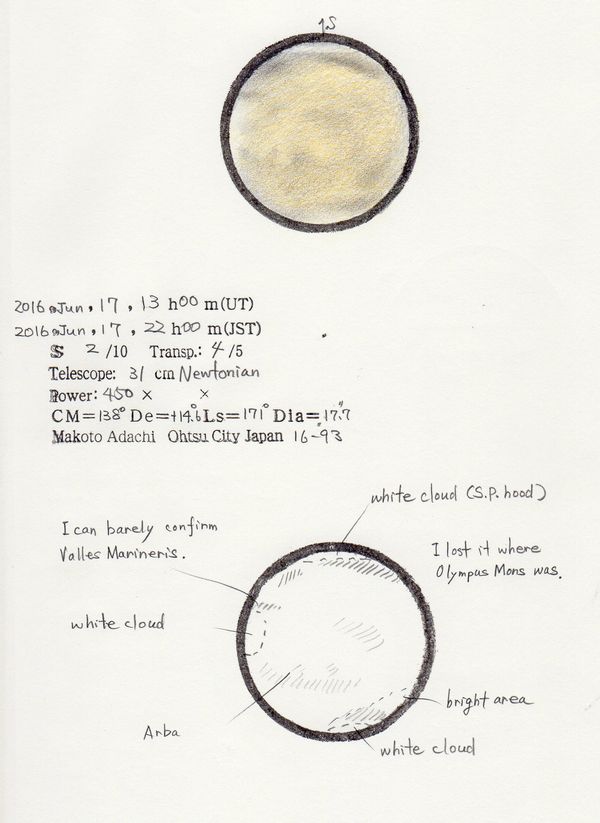 ↑S
2016 Jun, 17, 13 h 00 m (UT)
2016 Jun, 17, 22 h 00 m (JST)
S 2/10 Transp.: 4/5
Telescope: 31 cm Newtonian
Power: 450 × ×
CM=138° De=+14.6 Ls=171° Dia=17.7"
Makoto Adachi Ohtsu City Japan 16-93
white cloud (S.P. hood)
I can barely confirm
Valles Marineris.
I lost it where
Olympus Mons was.
white cloud
bright area
Arba
white cloud